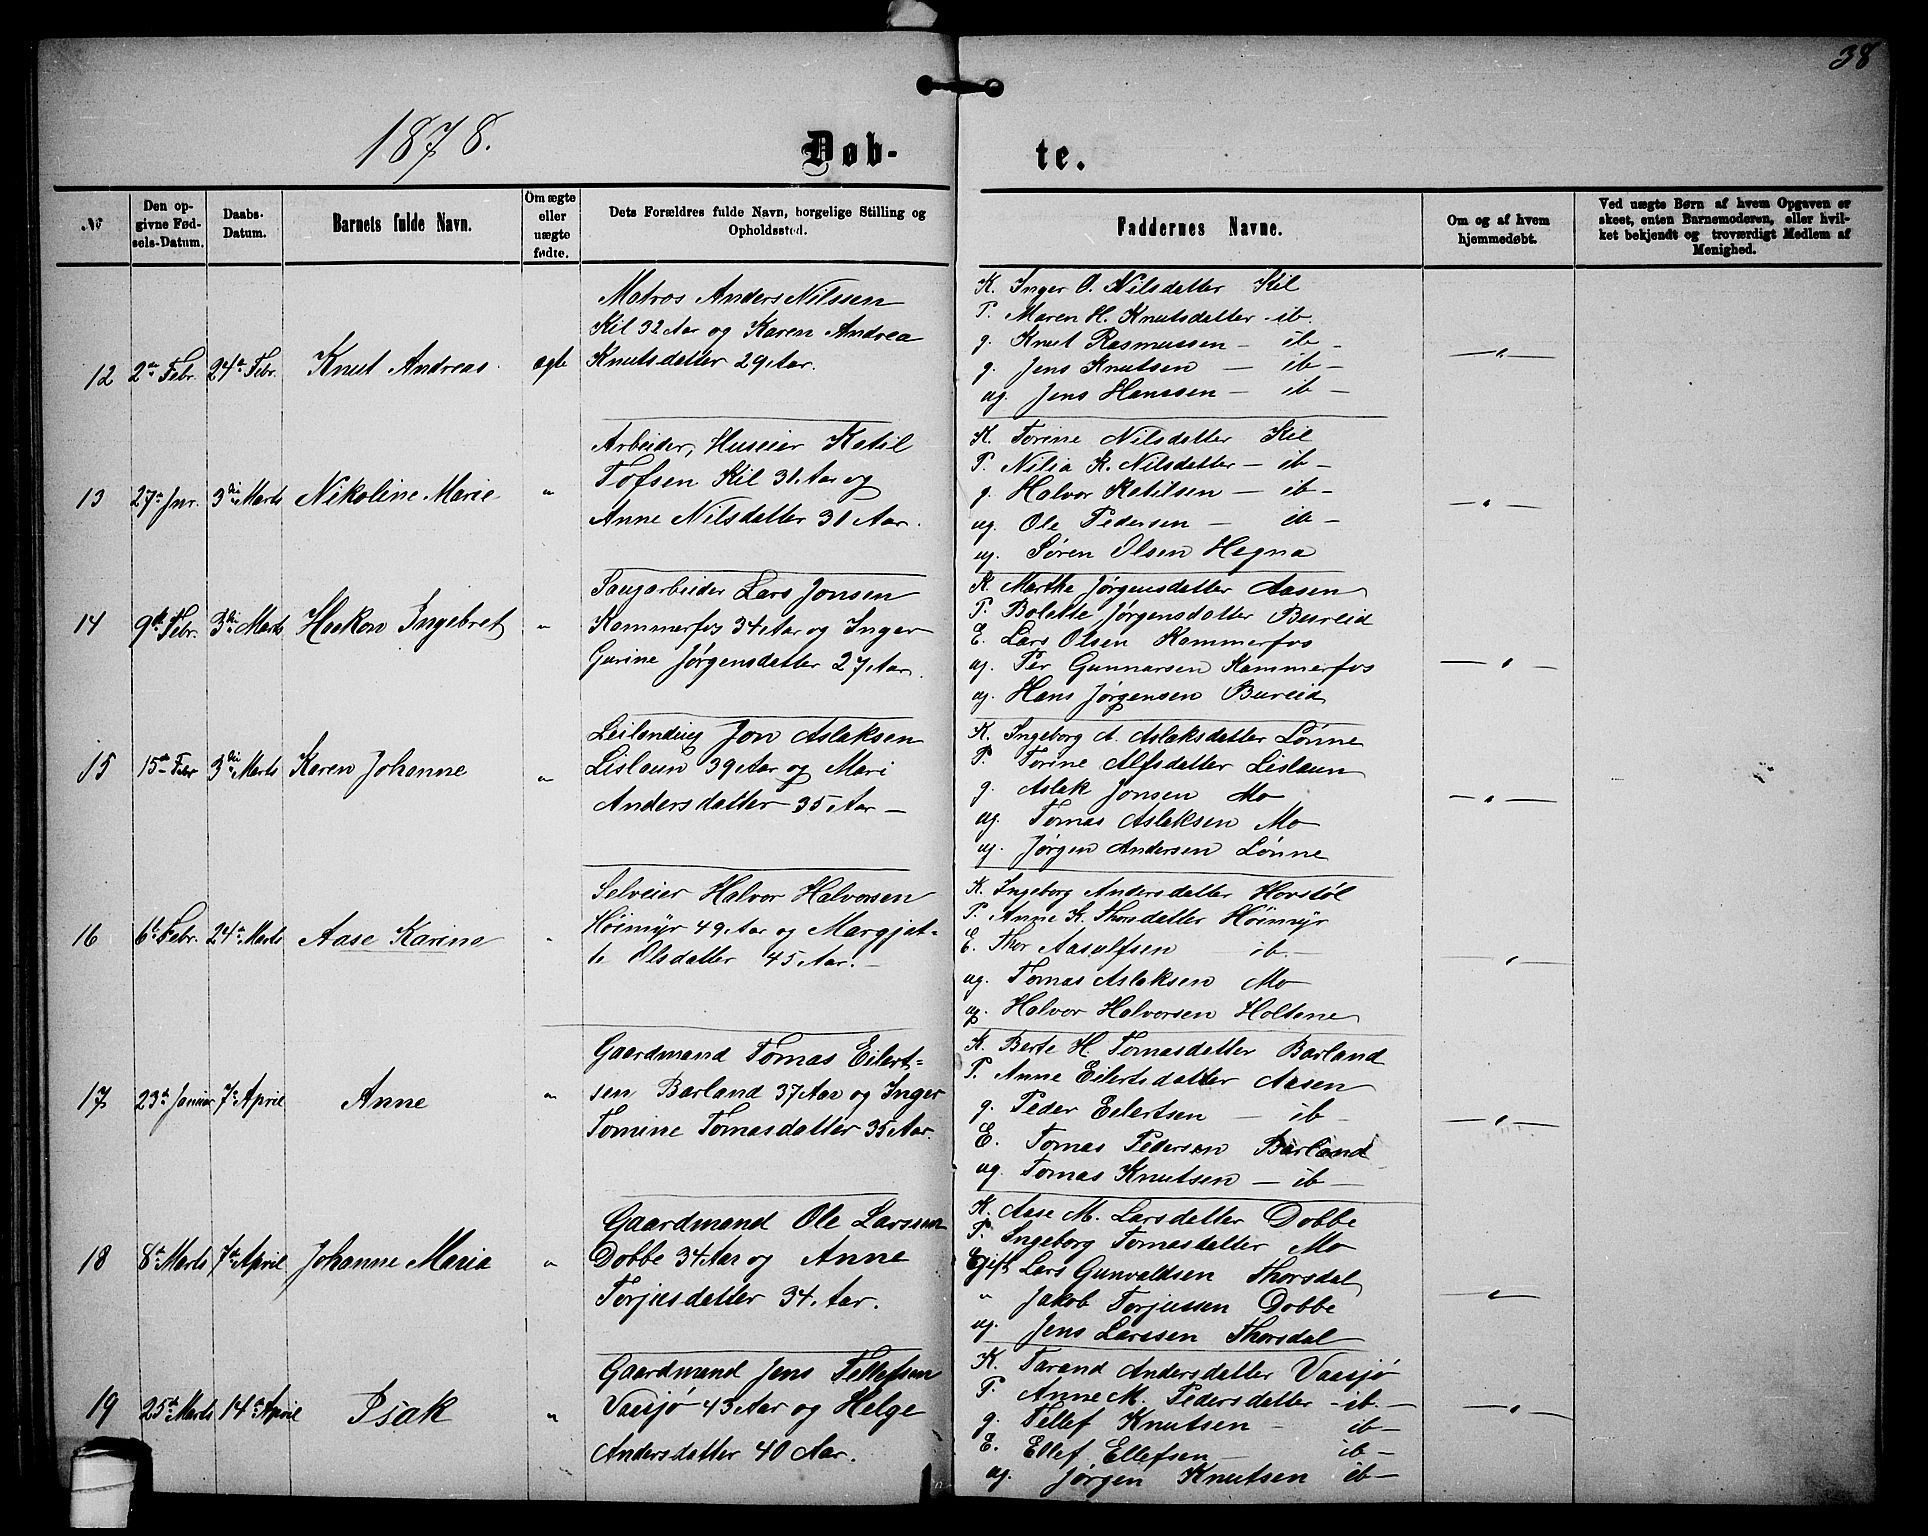 38
1878.
Døb- te.
№
Den opgivne Fødsels-Datum.
Daabs-Datum.
Barnets fulde Navn.
Om ægte eller uægte fødte.
Dets Forældres fulde Navn, borgelige Stilling og Opholdssted.
Faddernes Navne.
Om og af hvem hjemmedøbt.
Ved uægte Børn af hvem Opgaven er skeet, enten Barnemoderen, eller hvilket bekjendt og troværdigt Medlem af Menighed.
12 2de Febr. 24de Febr. Knut Andreas. ægte
Matros Anders Nilssen
Kil 32 Aar og Karen Andrea
Knutsdatter 29 Aar.
K. Inger O. Nilsdatter Kil
P. Maren H. Knutsdatter - ib.
g. Knut Rasmussen - ib -
g. Jens Knutsen - ib -
ug. Jens Hanssen - ib -
— " —
13 27de Jnr. 3die Marts Nikoline Marie "
Arbeider, Huseier Ketil
Tofsen Kil 31 Aar og
Anne Nilsdatter 31 Aar.
K. Torine Nilsdatter Kil
P. Nilia K. Nilsdatter - ib -
g. Halvor Ketilsen - ib -
ug. Ole Pedersen - ib -
ug. Søren Olsen Hegna
— " —
14 9de Febr. 3die Marts Haakon Ingebret "
Saugarbeider Lars Jonsen
Kammerfos 34 Aar og Inger
Gurine Jørgensdatter 27 Aar.
K. Marthe Jørgensdatter Aasen
P. Bolette Jørgensdatter Bureid
E. Lars Olsen Kammerfos
ug. Per Gunnarsen Kammerfos
ug. Hans Jørgensen Bureid
— " —
15 15de Febr 3die Marts Karen Johanne "
Leilending Jon Aslaksen
Lislaun 39 Aar og Mari
Andersdatter 35 Aar -
K. Ingeborg A. Aslaksdatter Lønne
P. Torine Alfsdatter Lislaun
g. Aslak Jonsen Mo
ug. Tomas Aslaksen Mo
ug. Jørgen Andersen Lønne
— " —
16 6te Febr. 24de Marts Aase Karine "
Selveier Halvor Halvorsen
Høimyr 49 Aar og Margjit-
te Olsdatter 45 Aar. -
K. Ingeborg Andersdatter Hovstøl
P. Anne K. Thorsdatter Høimyr
E. Thor Aasulfsen ib. -
ug. Tomas Aslaksen Mo
ug. Halvor Halvorsen Holtane
— " —
17 23de Januar 7de April Anne "
Gaardmand Tomas Eilert-
sen Barland 37 Aar og Inger
Tomine Tomasdatter 35 Aar.
K. Berte H. Tomasdatter Barland
P. Anne Eilertsdatter Aasen
g. Peder Eilertsen - ib -
E. Tomas Pedersen Barland
ug. Tomas Knutsen - ib -
— " —
18 8de Marts 7de April Johanne Maria "
Gaardmand Ole Larssen
Dobbe 34 Aar og Anne
Torjusdatter 34 Aar.
K. Aase M. Larsdatter Dobbe
P. Ingeborg Tomasdatter Mo
Gift Lars Gunvaldsen Thorsdal
" Jakob Torjussen Dobbe
ug. Jens Larssen Thorsdal
— " —
19 25de Marts 14de April Isak "
Gaardmand Jens Tellefsen
Vasjø 43 Aar og Helge
Andersdatter 40 Aar.
K. Tarand Andersdatter Vasjø
P. Anne M. Pedersdatter - ib. -
g. Tellef Knutsen - ib -
E. Ellef Ellefsen - ib -
ug. Jørgen Knutsen ib -
— " —